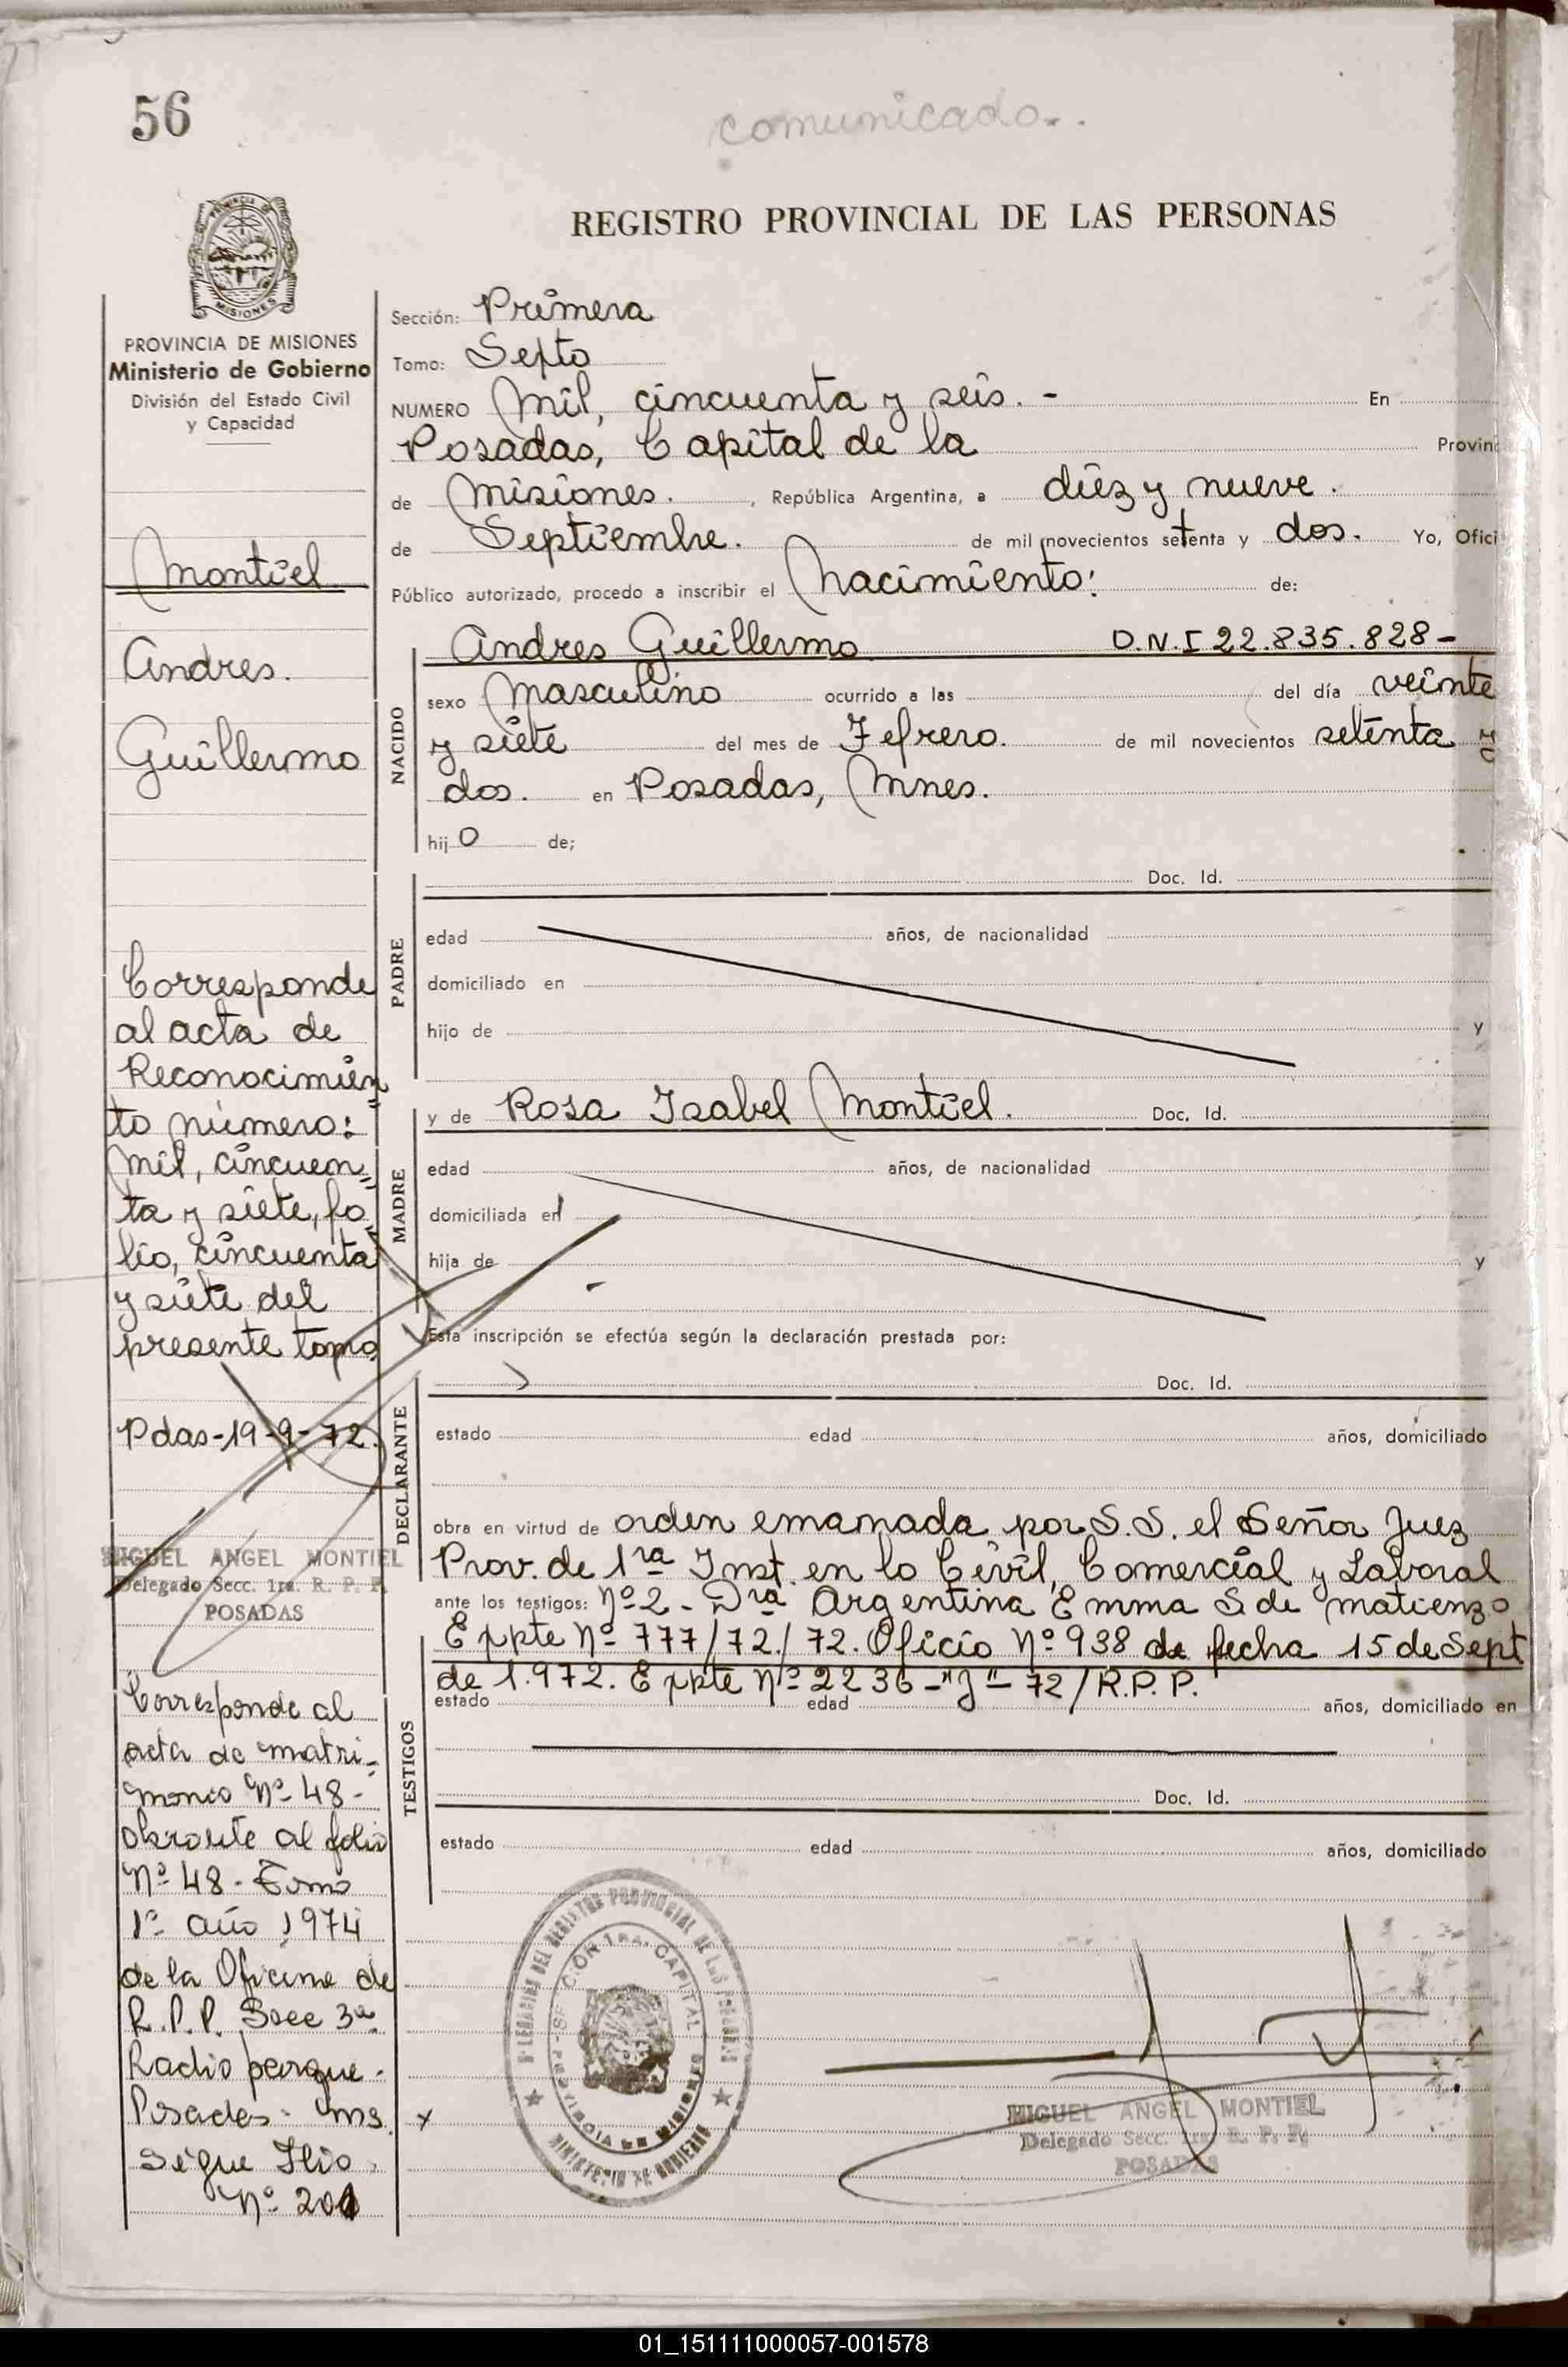 56
comunicado..
REGISTRO PROVINCIAL DE LAS PERSONAS
MISIONES
PROVINCIA DE MISIONES
Ministerio de Gobierno
División del Estado Civil
y Capacidad
Montiel
Andres.
Guillermo
Corresponde
al acta de
Reconocimien=
to número:
Mil, cincuen=
ta y siete, fo=
lio, cincuenta
y siete del
presente tomo
Pdas-19-9-72.
MIGUEL ANGEL MONTIEL
Delegado Secc. 1ra. R. P. P.
POSADAS
Corresponde al
acta de matri=
monio Nº 48-
obrante al folio
Nº 48- Tomo
1º año 1974
de la Oficina de
R.P.P. Secc 3ª
Radio parque-
Posadas- Ms.
Sigue Flio
Nº 201
Sección: Primera
Tomo: Septo
NUMERO Mil, cincuenta y seis. - En
Posadas, Capital de la Provinc
de Misiones. , República Argentina, a diez y nueve.
de Septiembre. de mil novecientos setenta y dos. Yo, Ofici
Público autorizado, procedo a inscribir el Nacimiento: de:
NACIDO
Andres Guillermo D.N.I 22.835.828-
sexo Masculino ocurrido a las del día veinte
y siete del mes de Febrero. de mil novecientos setenta y
dos. en Posadas, Mnes.
hij o de;
PADRE
Doc. Id.
edad años, de nacionalidad
domiciliado en
hijo de y
MADRE
y de Rosa Isabel Montiel. Doc. Id.
edad años, de nacionalidad
domiciliada en
hija de y
Esta inscripción se efectúa según la declaración prestada por:
DECLARANTE
Doc. Id.
estado edad años, domiciliado
obra en virtud de orden emanada por S.S. el Señor Juez
Prov. de 1ra Inst. en lo Civil, Comercial y Laboral
ante los testigos: Nº 2 - Dra Argentina Emma S. de Matienzo
Expte Nº 777/72/72. Oficio Nº 938 de fecha 15 de Sept
de 1.972. Expte Nº 2236-"J"-72/R.P.P.
TESTIGOS
estado edad años, domiciliado en
Doc. Id.
estado edad años, domiciliado
DEL REGISTRO PROVINCIAL DE LAS PERSONAS
SECCION 1ra. CAPITAL
PROVINCIA DE MISIONES
MINISTERIO DE GOBIERNO
MIGUEL ANGEL MONTIEL
Delegado Secc. 1ra. R. P. P.
POSADAS
01_151111000057-001578